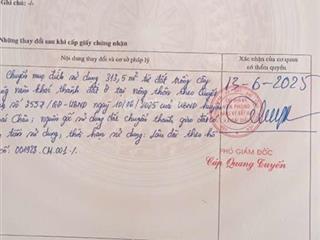 chú: -/-
Những thay đổi sau khi cấp giấy chứng nhận
Nội dung thay đổi và cơ sở pháp lý
Xác nhận của cơ quan
có thẩm quyền
Chuyển mục đích sử dụng 313,5 m² từ đất trồng cây
năm khác thành đất ở tại nông thôn theo Quyết
số 3557/QĐ-UBND ngày 10/06/2025 của UBND huyện
Châu; người sử dụng đất chuyển thành giao đất có
tiền sử dụng; thời hạn sử dụng: Lâu dài theo hồ
số: 001973.CN.001./.
13-6-2025
PHÓ GIÁM ĐỐC
Cáp Quang Tuyến